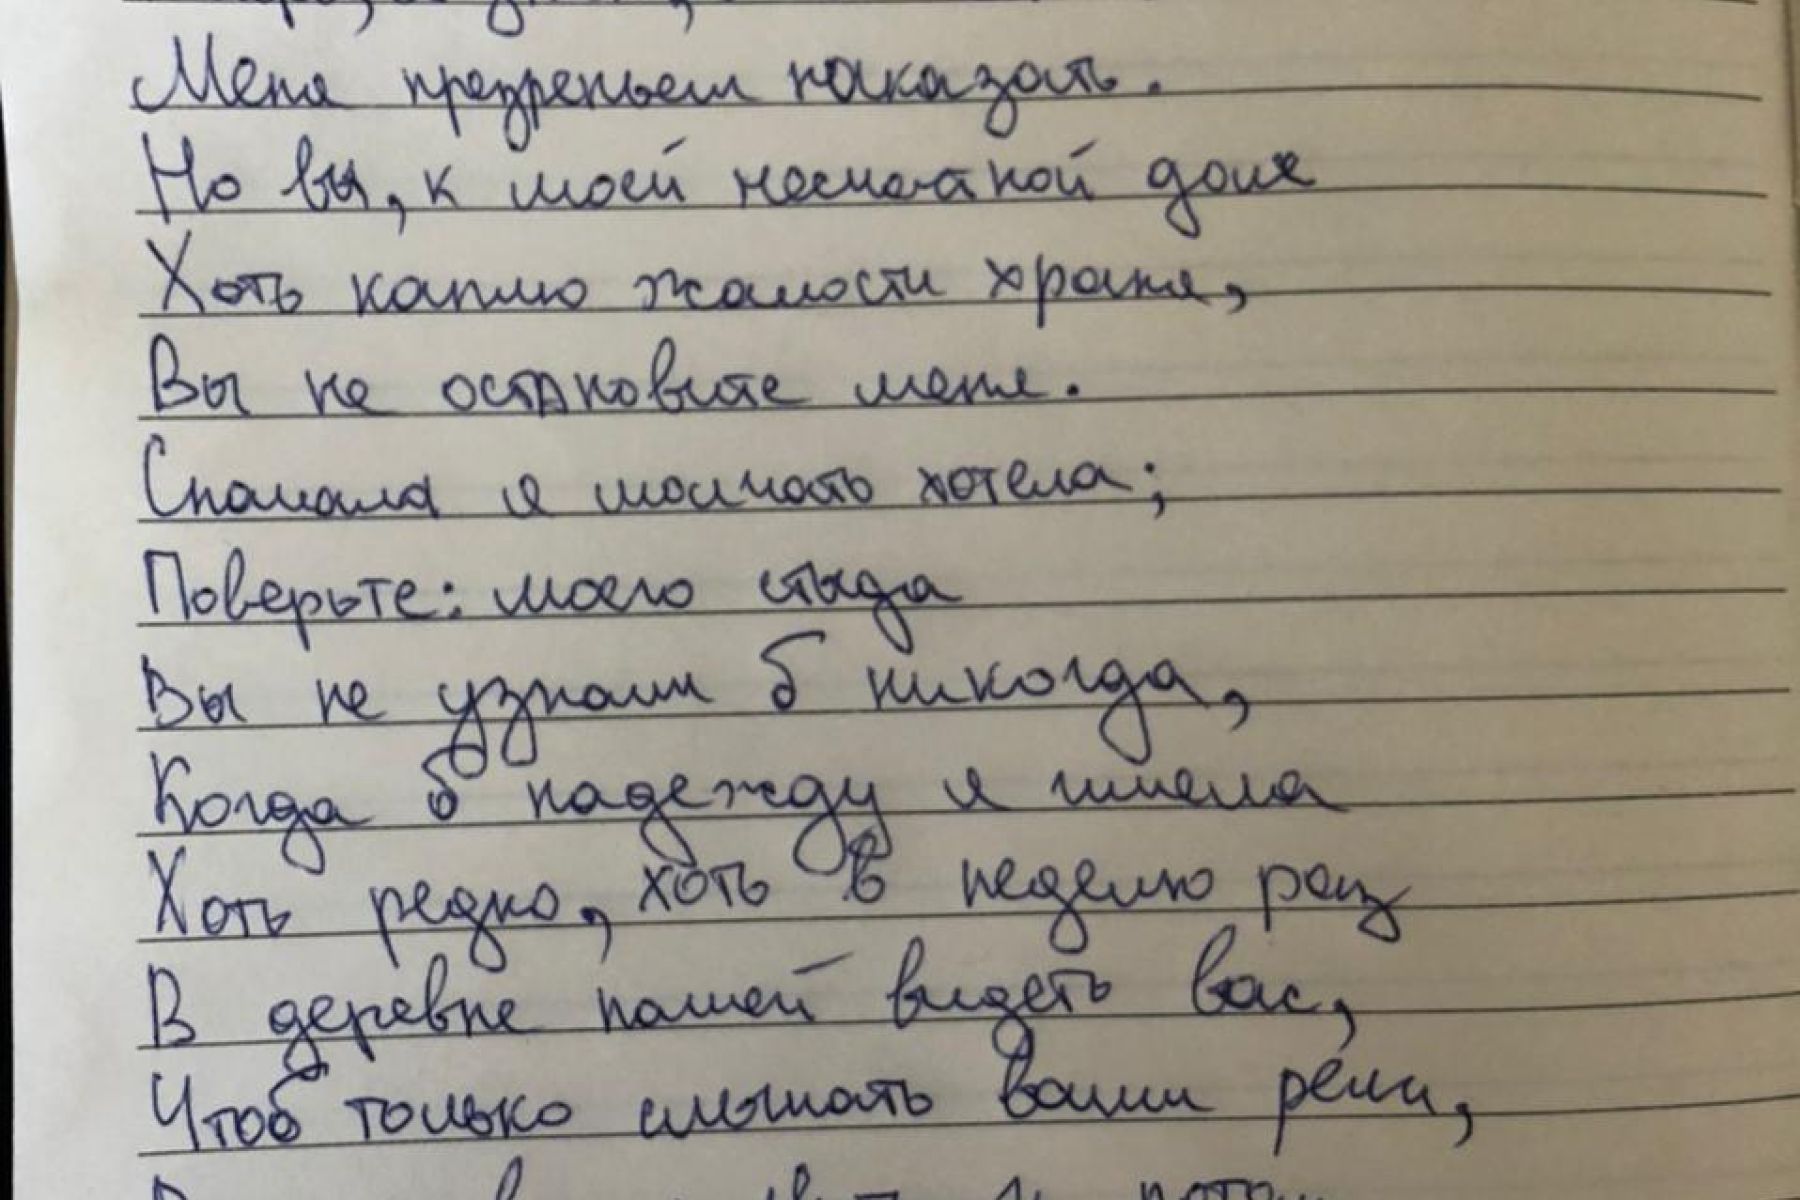 Меня презреньем наказать.
Но вы, к моей несчастной доле
Хоть каплю жалости храня,
Вы не оставите меня.
Сначала я молчать хотела;
Поверьте: моего стыда
Вы не узнали б никогда,
Когда б надежду я имела
Хоть редко, хоть в неделю раз
В деревне нашей видеть вас,
Чтоб только слышать ваши речи,